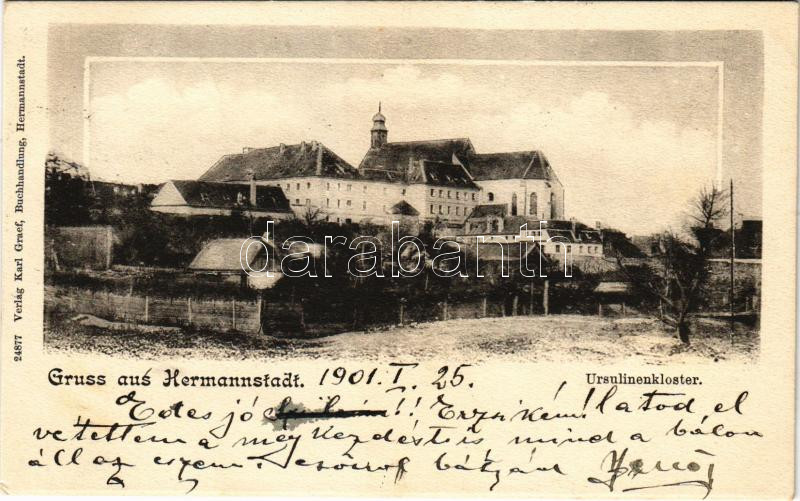 24877 Verlag Karl Graef, Buchhandlung, Hermannstadt.
darabanth
Gruss aus Hermannstadt. 1901. I. 25.
Ursulinenkloster.
Édes jó !! Erzsikém! Látod, el
vétettem a még kezdést is mind a bálon
áll az eszem. csókol bátyád Jenő